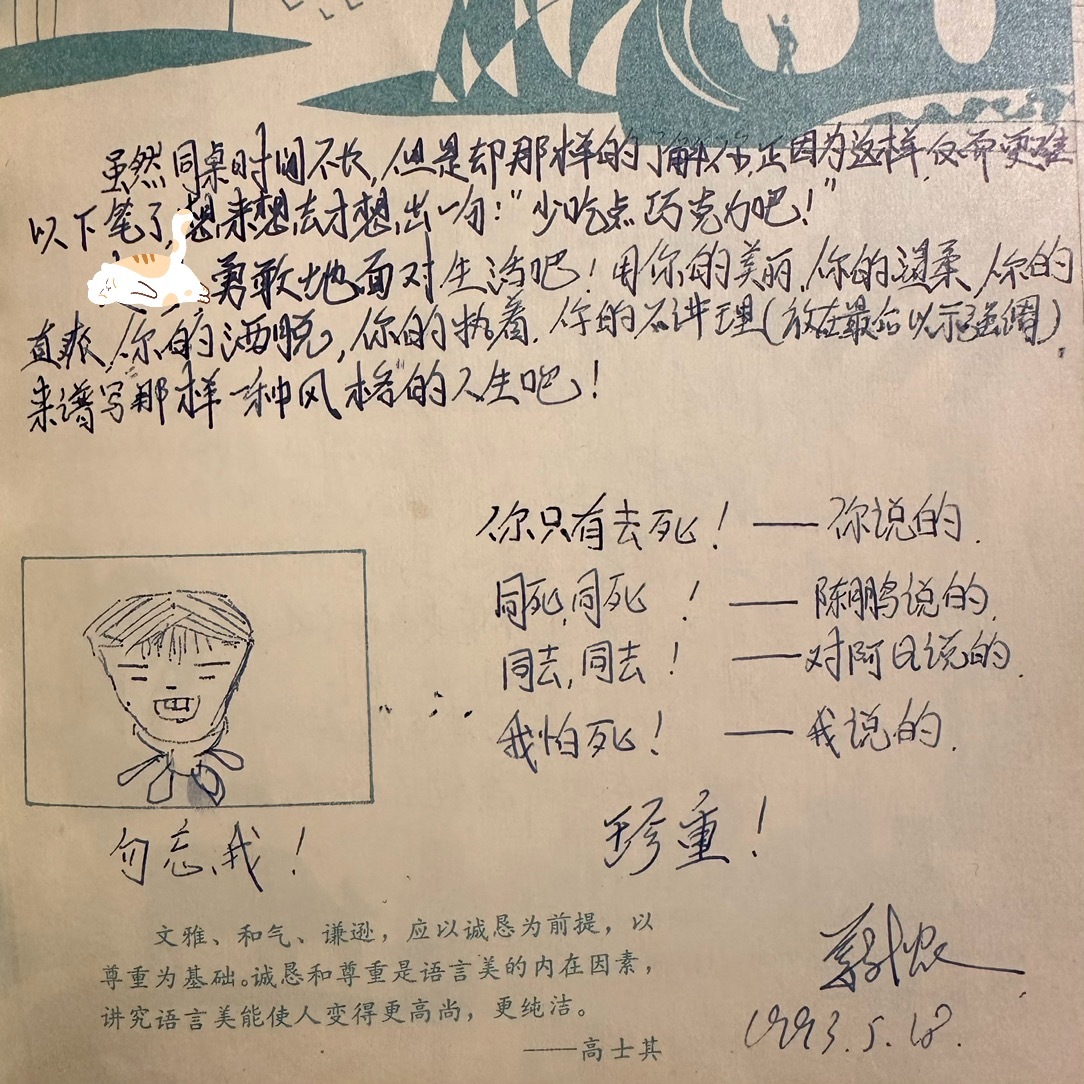 虽然同桌时间不长,但是却那样的了解你,正因为这样,反而更难
以下笔了,想来想去才想出一句:"少吃点巧克力吧!"
勇敢地面对生活吧!用你的美丽,你的温柔,你的
直爽,你的洒脱,你的执着,你的不讲理(放在最后以示强调)
来谱写那样一种风格的人生吧!
你只有去死!——你说的.
同死,同死!——陈鹏说的.
同去,同去!——对阿Q说的.
我怕死!——我说的.
勿忘我!
珍重!
文雅、和气、谦逊,应以诚恳为前提,以
尊重为基础。诚恳和尊重是语言美的内在因素,
讲究语言美能使人变得更高尚,更纯洁。
——高士其
1993.5.18.